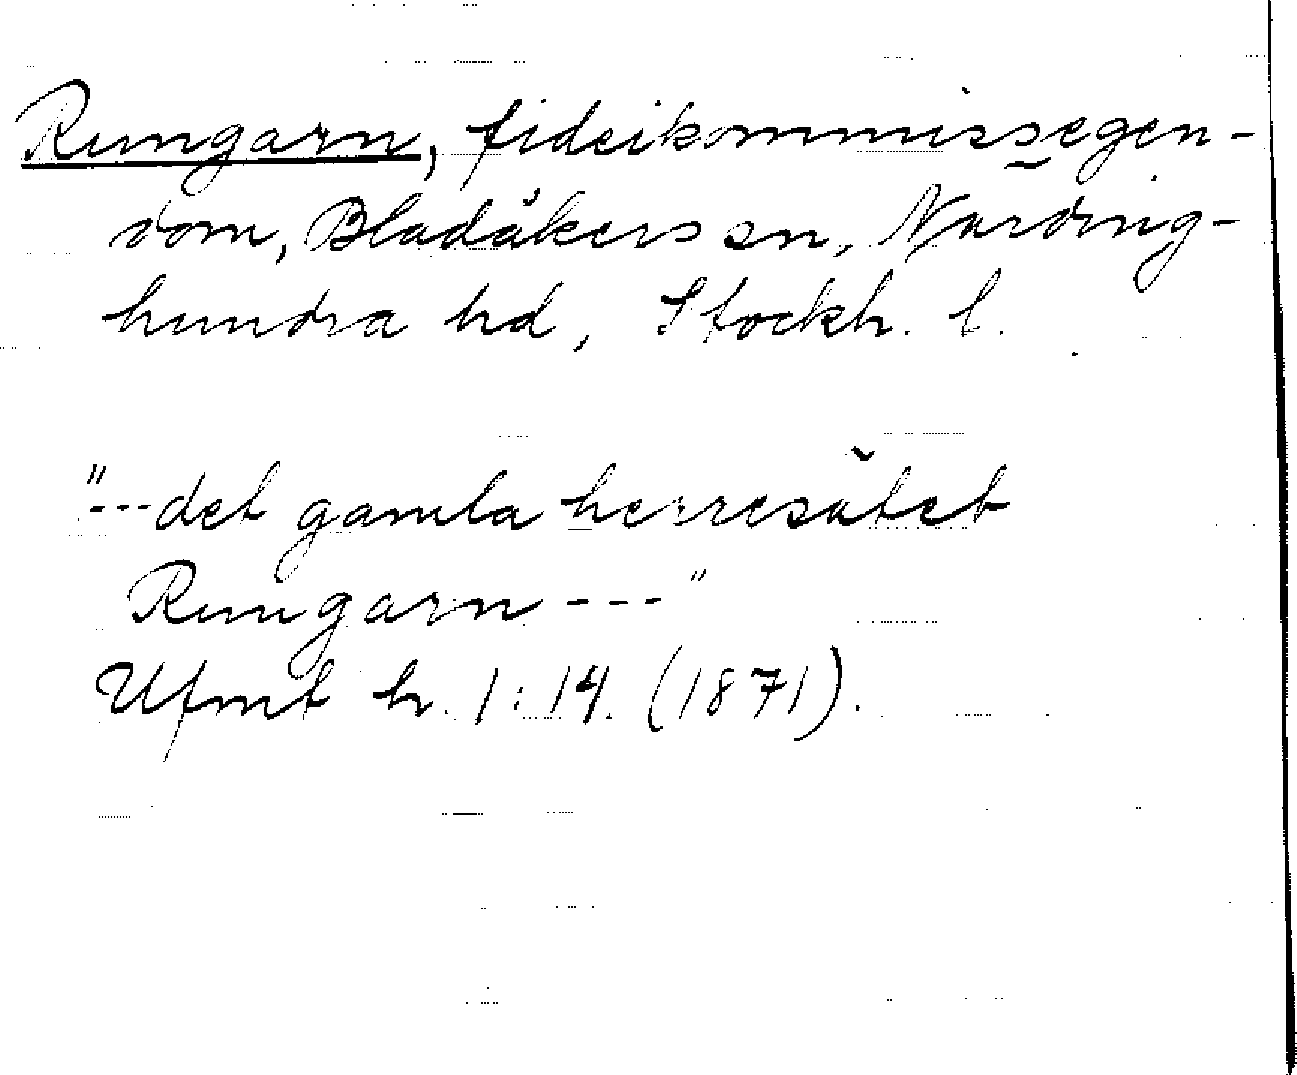 Rungarn, fideikommissegen-
dom, Bladåkers sn, Narding-
hundra hd, Stockh. l.
"---det gamla herresätet
Rungarn---"
Ufmt h. 1:14. (1871).